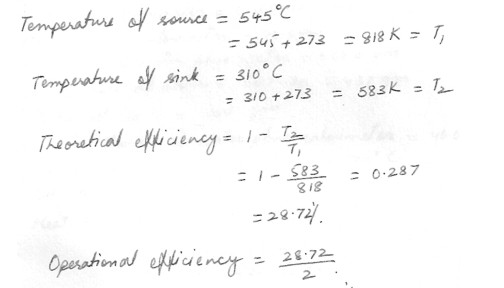 Temperature of source = 545°C
= 545 + 273 = 818K = T₁
Temperature of sink = 310°C
= 310 + 273 = 583K = T₂
Theoretical efficiency = 1 - T₂/T₁
= 1 - 583/818 = 0.287
= 28.72%.
Operational efficiency = 28.72/2